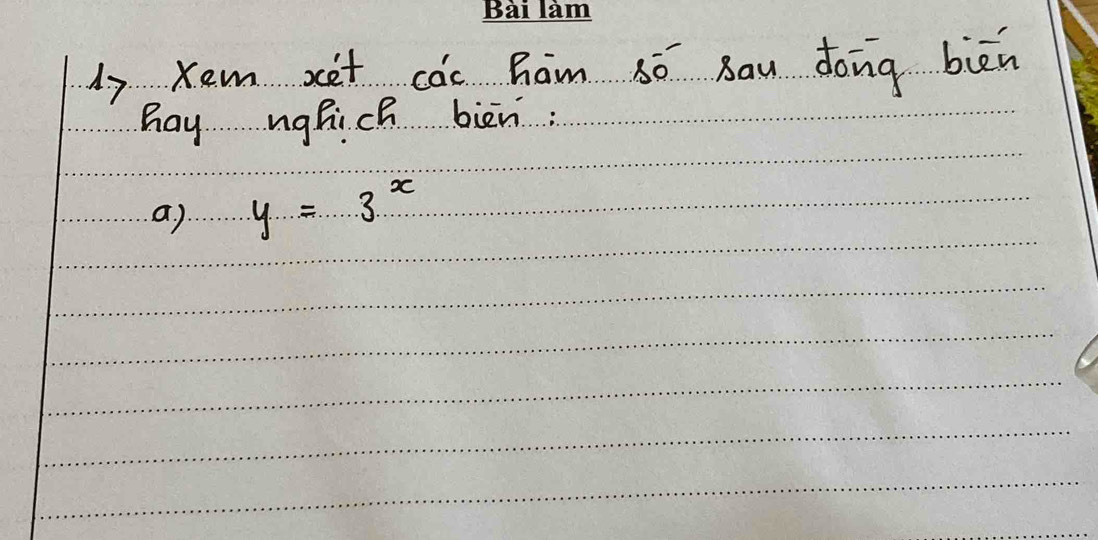 Bài làm
1> Xem xét các hàm số sau đồng biến
hay nghịch biến :
a) y = 3^x